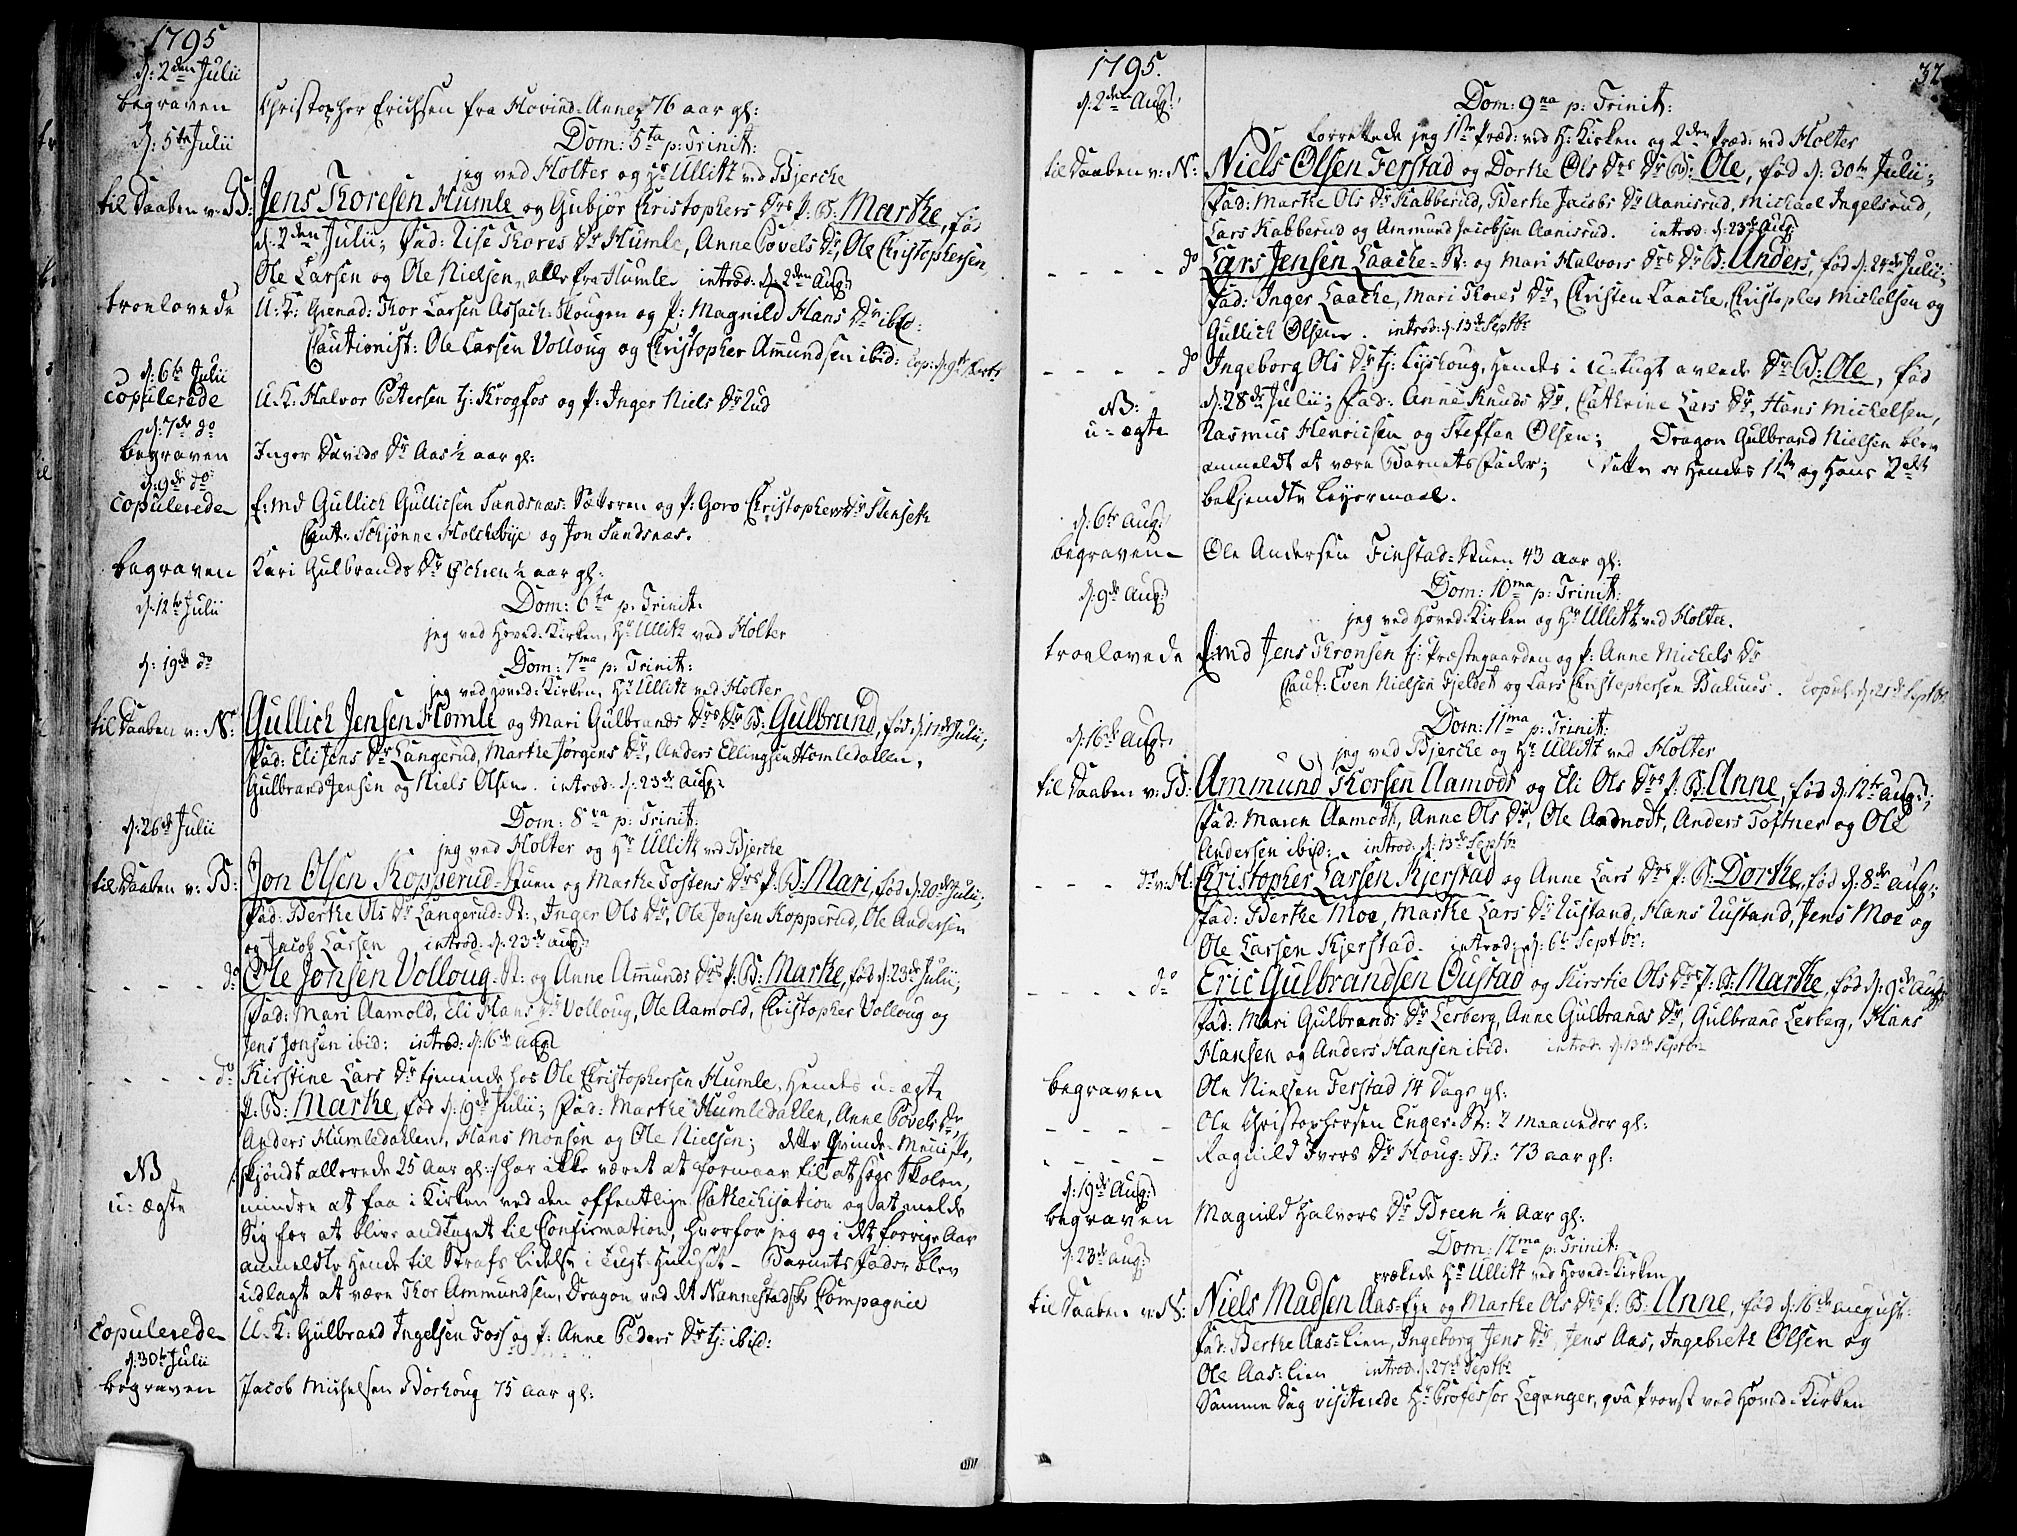 1795
d: 2den Julii
begraven Christopher Erichsen fra Hovind-Annex 76 aar gl:
d: 5te Julii Dom: 5ta p: Trinit:
jeg ved Holter og Hr Ullitz ved Bjerche
til Daaben v: B: Jens Thoresen Humle og Gubjør Christophers Drs p: B: Marthe, fød
d: 2den Julii; Fad: Lise Thores Dr Humle, Anne Povels Dr, Ole Christophersen
Ole Larsen og Ole Nielsen, alle fra Humle introd: d: 2den Aug:
troelovede U:K: Grenad: Thor Larsen Assach-Skougen og p: Magnild Hans Dr ibid:
Cautionist: Ole Larsen Volloug og Christopher Amundsen ibid: cop: d: 9de
d: 6te Julii
copulerede U:K: Halvor Petersen tj: Krogfos og p: Inger Niels Dr Rud
d: 7de do
begraven Inger Davids Dr Aas ½ aar gl:
d: 9de do
copulerede E:md Gullich Gullichsen Sandsnæs-Sætteren og p: Goro Christophers Dr Stenseth
Caut: Schjønne Holchebye og Jon Sandsnæs.
begraven Kari Gulbrands Dr Øchren ½ aar gl:
d: 12te Julii Dom: 6ta p: Trinit:
jeg ved Hoved-Kirken, Hr Ullitz ved Holter
d: 19de do Dom: 7ma p: Trinit:
jeg ved Hoved-Kirken, Hr Ullitz ved Holter
til Daaben v: N: Gullich Jensen Homle og Mari Gulbrands Drs Dr B: Gulbrand, fød d: 17de Julii;
Fad: Eli Jens Dr Langerud, Marthe Jørgens Dr, Anders Ellingsen Homledallen,
Gulbrand Jensen og Niels Olsen. introd: d: 23de Aug:
d: 26de Julii Dom: 8va p: Trinit:
jeg ved Holter og Hr Ullitz ved Bjerche
til Daaben v: B: Jon Olsen Kopperud-Stuen og Marthe Tostens Drs p: B: Mari, fød d: 20de Julii;
Fad: Berthe Ols Dr Langerud-St:, Inger Ols Dr, Ole Jonsen Kopperud, Ole Andersen
og Jacob Larsen introd: d: 23de Aug:
- - - - do Ole Jonsen Volloug-St: og Anne Amunds Drs p: B: Marthe, fød d: 23de Julii;
Fad: Mari Aamold, Eli Hans Dr Volloug, Ole Aamold, Christopher Volloug og
Jens Jonsen ibid: introd: d: 16de Aug:
- - - - do Kirstine Lars Dr tjenende hos Ole Christophersen Humle, Hendes u-ægte
p: B: Marthe, fød d: 19de Julii; Fad: Marthe Humledallen, Anne Povels Dr
Anders Humledallen, Hans Monsen og Ole Nielsen; dette Qvinde-Menniske,
NB skjøndt allerede 25 Aar gl: har ikke været at formaae til at søge Skolen,
u-ægte mindre at faa i Kirken ved den offentlige Cathechisation og at melde
Sig for at blive antaget til Confirmation, hvorfor jeg og i det forrige Aar
anmeldte Hende til Straffs Lidelse i Tugt-Huuset - Barnets Fader blev
udlagt at være Thor Ammundsen, Dragon ved det Nannestadske Compagnie
copulerede U:K: Gulbrand Ingelsen Foss og p: Anne Peders Dr tj: ibid:
d: 30te Julii
begraven Jacob Michelsen Borhoug 75 aar gl:
1795. 32
d: 2den Aug: Dom: 9na p: Trinit:
forrettede jeg 11te Præd: ved H: Kirken og 2den Præd: ved Holter
til Daaben v: N: Niels Olsen Ferstad og Dorthe Ols Drs Dr B: Ole, fød d: 30te Julii;
Fad: Marthe Ols Dr Kabberud, Berthe Jacobs Dr Aanisrud, Michael Ingelsrud,
Lars Kabberud og Ammund Jacobsen Aanisrud. introd: d: 23de Aug:
- - - - do Lars Jensen Laache-St: og Mari Halvors Drs Dr B: Anders, fød d: 24de Julii;
Fad: Inger Laache, Mari Thores Dr, Christen Laache, Christopher Michelsen og
Gullich Olsen. introd: d: 13de Septbr
- - - - do Ingeborg Ols Dr tj: Lyshoug, Hendes i U-tugt avlede Dr B: Ole, fød
NB: d: 28de Julii; Fad: Anne Knuds Dr, Cathrine Lars Dr, Hans Michelsen,
u-ægte Rasmus Henricsen og Steffen Olsen; Dragon Gulbrand Nielsen blev
anmeldt at være Barnets Fader; dette er Hendes 1te og Hans 2det
bekjendte Leyermaal.
d: 6te Aug:
begraven Ole Andersen Finstad-Stuen 43 aar gl:
d: 9de Aug: Dom: 10ma p: Trinit:
jeg ved Hoved-Kirken og Hr Ullitz ved Holter.
troelovede E:md Jens Thronsen tj: Præstegaarden og p: Anne Michels Dr
Caut: Even Nielsen Fjeldet og Lars Christophersen Balnes. Copul: d: 21de Septbr
d: 16de Aug: Dom: 11ma p: Trinit:
jeg ved Bjerche og Hr Ullitz ved Holter
til Daaben v: B: Ammund Thorsen Aamodt og Eli Ols Drs p: B: Anne, fød d: 12te Aug:;
Fad: Maren Aamodt, Anne Ols Dr, Ole Aadnodt, Anders Toftner og Ole
Andersen ibid: introd: d: 13de Septbr
- - - do v: H: Christopher Larsen Kjerstad og Anne Lars Drs p: B: Dorthe, fød d: 8de Aug:;
Fad: Berthe Moe, Marthe Lars Dr Rustand, Hans Rustand, Jens Moe og
Ole Larsen Kjerstad. introd: d: 6te Septbr:
- - - - do Eric Gulbrandsen Oustad og Kirstie Ols Drs p: B: Marthe, fød d: 9de Aug:
Fad: Mari Gulbrands Dr Lerberg, Anne Gulbrands Dr, Gulbrand Lerberg, Hans
Hansen og Anders Hansen ibid. introd: d: 13de Septbr
begraven Ole Nielsen Ferstad 14 Dage gl:
- - - - Ole Christophersen Enger-St: 2 Maaneder gl:
- - - - Ragnild Ivers Dr Houg-St: 73 aar gl:
d: 19de Aug:
begraven Magnild Halvors Dr Breen ½ Aar gl:
d: 23de Aug: Dom: 12ma p: Trinit:
prækede Hr Ullitz ved Hoved-Kirken
til Daaben v: N: Niels Madsen Aas-Eye og Marthe Ols Drs p: B: Anne, fød d: 16de August:
Fad: Berthe Aas-Lien, Ingeborg Jens Dr, Jens Aas, Ingebreth Olsen og
Ole Aas-Lien introd: d: 27de Septbr
Samme Dag visiterede Hr Professor Leganger, qva Provst ved Hoved-Kirken